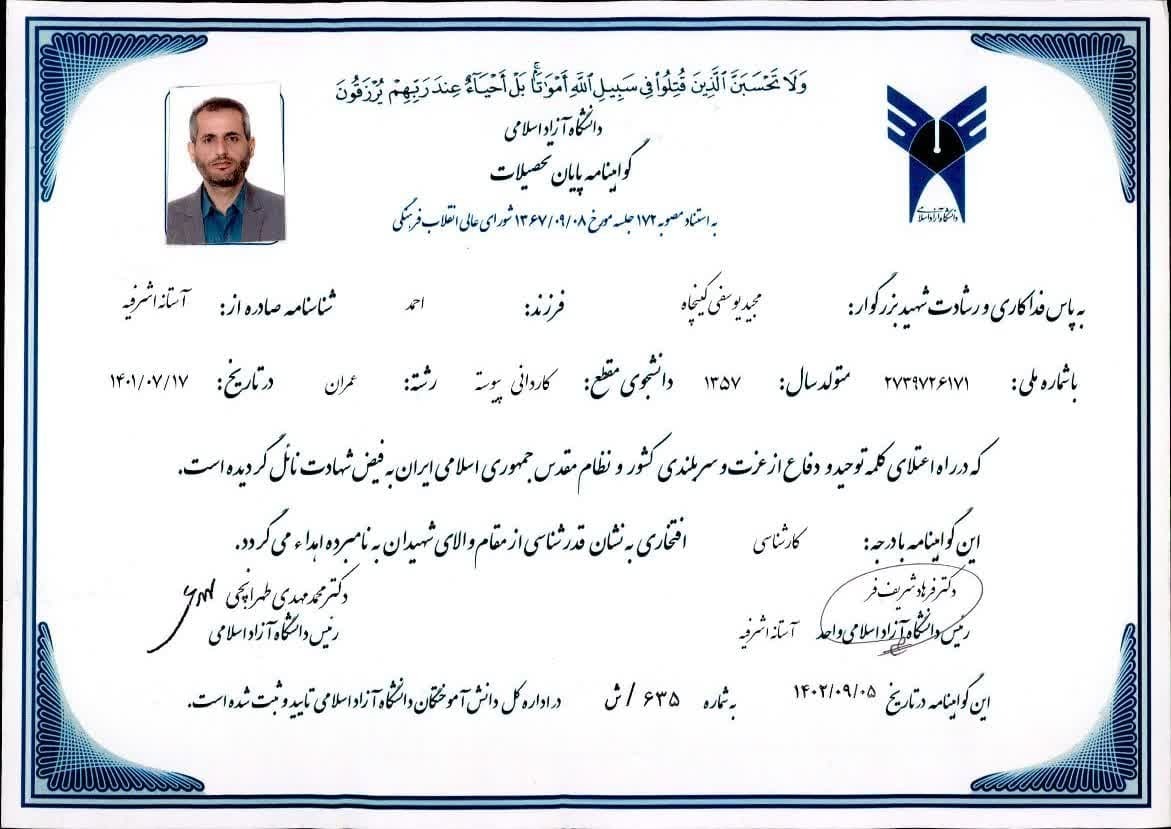 وَلَا تَحْسَبَنَّ الَّذِينَ قُتِلُوا فِي سَبِيلِ اللَّهِ أَمْوَاتًا بَلْ أَحْيَاءٌ عِندَ رَبِّهِمْ يُرْزَقُونَ
دانشگاه آزاد اسلامی
گواهینامه پایان تحصیلات
به استناد مصوبه ۱۷۲ جلسه مورخ ۱۳۶۷/۰۹/۰۸ شورای عالی انقلاب فرهنگی
دانشگاه آزاد اسلامی
به پاس فداکاری و رشادت شهید بزرگوار: مجید یوسفی کینچاه فرزند: احمد شناسنامه صادره از: آستانه اشرفیه
با شماره ملی: ۲۷۳۹۷۲۶۱۷۱ متولد سال: ۱۳۵۷ دانشجوی مقطع: کاردانی پیوسته رشته: عمران در تاریخ: ۱۴۰۱/۰۷/۱۷
که در راه اعتلای کلمه توحید و دفاع از عزت و سربلندی کشور و نظام مقدس جمهوری اسلامی ایران به فیض شهادت نائل گردیده است.
این گواهینامه با درجه: کارشناسی افتخاری به نشان قدرشناسی از مقام والای شهیدان به نامبرده اهداء می گردد.
دکتر فرهاد شریف فر
رئیس دانشگاه آزاد اسلامی واحد آستانه اشرفیه
دکتر محمد مهدی طهرانچی
رئیس دانشگاه آزاد اسلامی
این گواهینامه در تاریخ ۱۴۰۲/۰۹/۰۵ به شماره ۶۳۵ / ش در اداره کل دانش آموختگان دانشگاه آزاد اسلامی تایید و ثبت شده است.